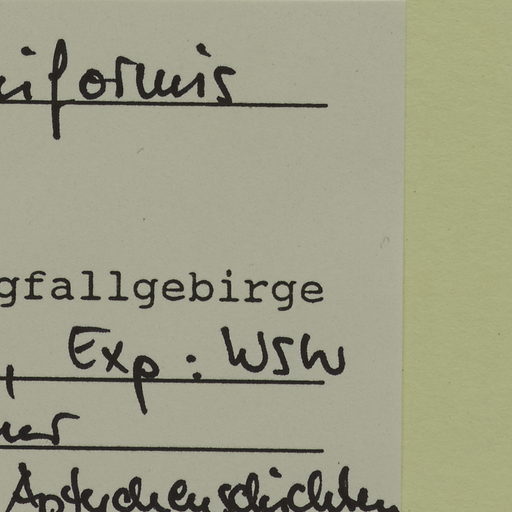 iformis
gfallgebirge
, Exp.: WSW
ner
Aptychenschichten